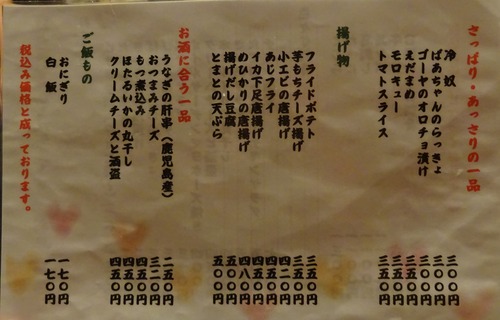 さっぱり・あっさりの一品
冷奴 三〇〇円
ばあちゃんのらっきょ 三〇〇円
ゴーヤのオロチョ漬け 三〇〇円
えだまめ 三五〇円
モロキュー 三五〇円
トマトスライス 三五〇円
揚げ物
フライドポテト 三五〇円
芋もちチーズ揚げ 三五〇円
小エビの唐揚げ 四二〇円
あじフライ 四五〇円
イカ下足唐揚げ 四五〇円
めひかりの唐揚げ 四八〇円
揚げだし豆腐 五〇〇円
とまとの天ぷら 五〇〇円
お酒に合う一品
うなぎの肝串(鹿児島産) 二五〇円
おつまみチーズ 三二〇円
もつ煮込み 四五〇円
ほたるいかの丸干し 四五〇円
クリームチーズと酒盗 四五〇円
ご飯もの
おにぎり 一七〇円
白飯 一七〇円
税込み価格と成っております。